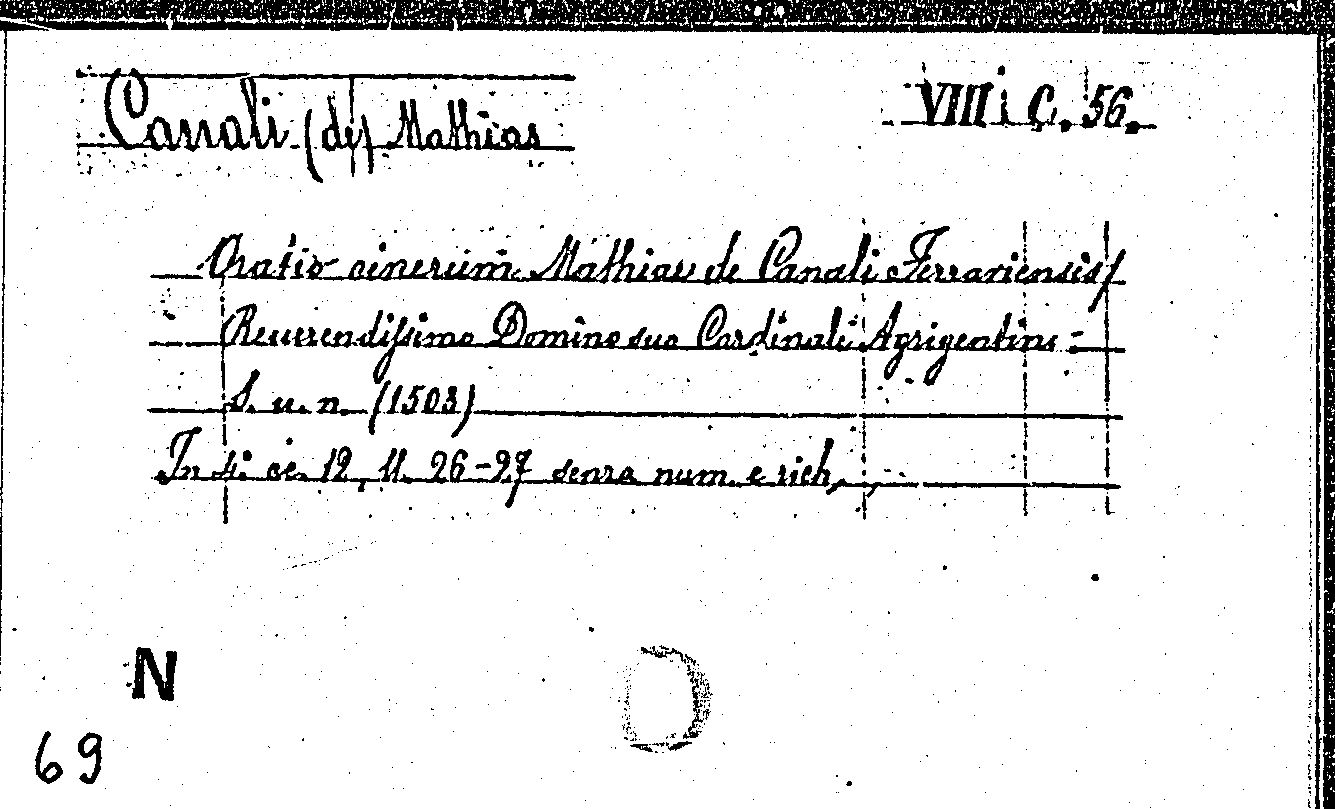 Canali (de) Mathias
VIII C. 56.
Oratio cinerum Mathiae de Canali Ferrariensis /
Reuerendissimo Domino suo Cardinali Agrigentino =
S. u. n. (1503)
In 4° cc. 12, ll. 26-27 senza num. e rich.
N
69